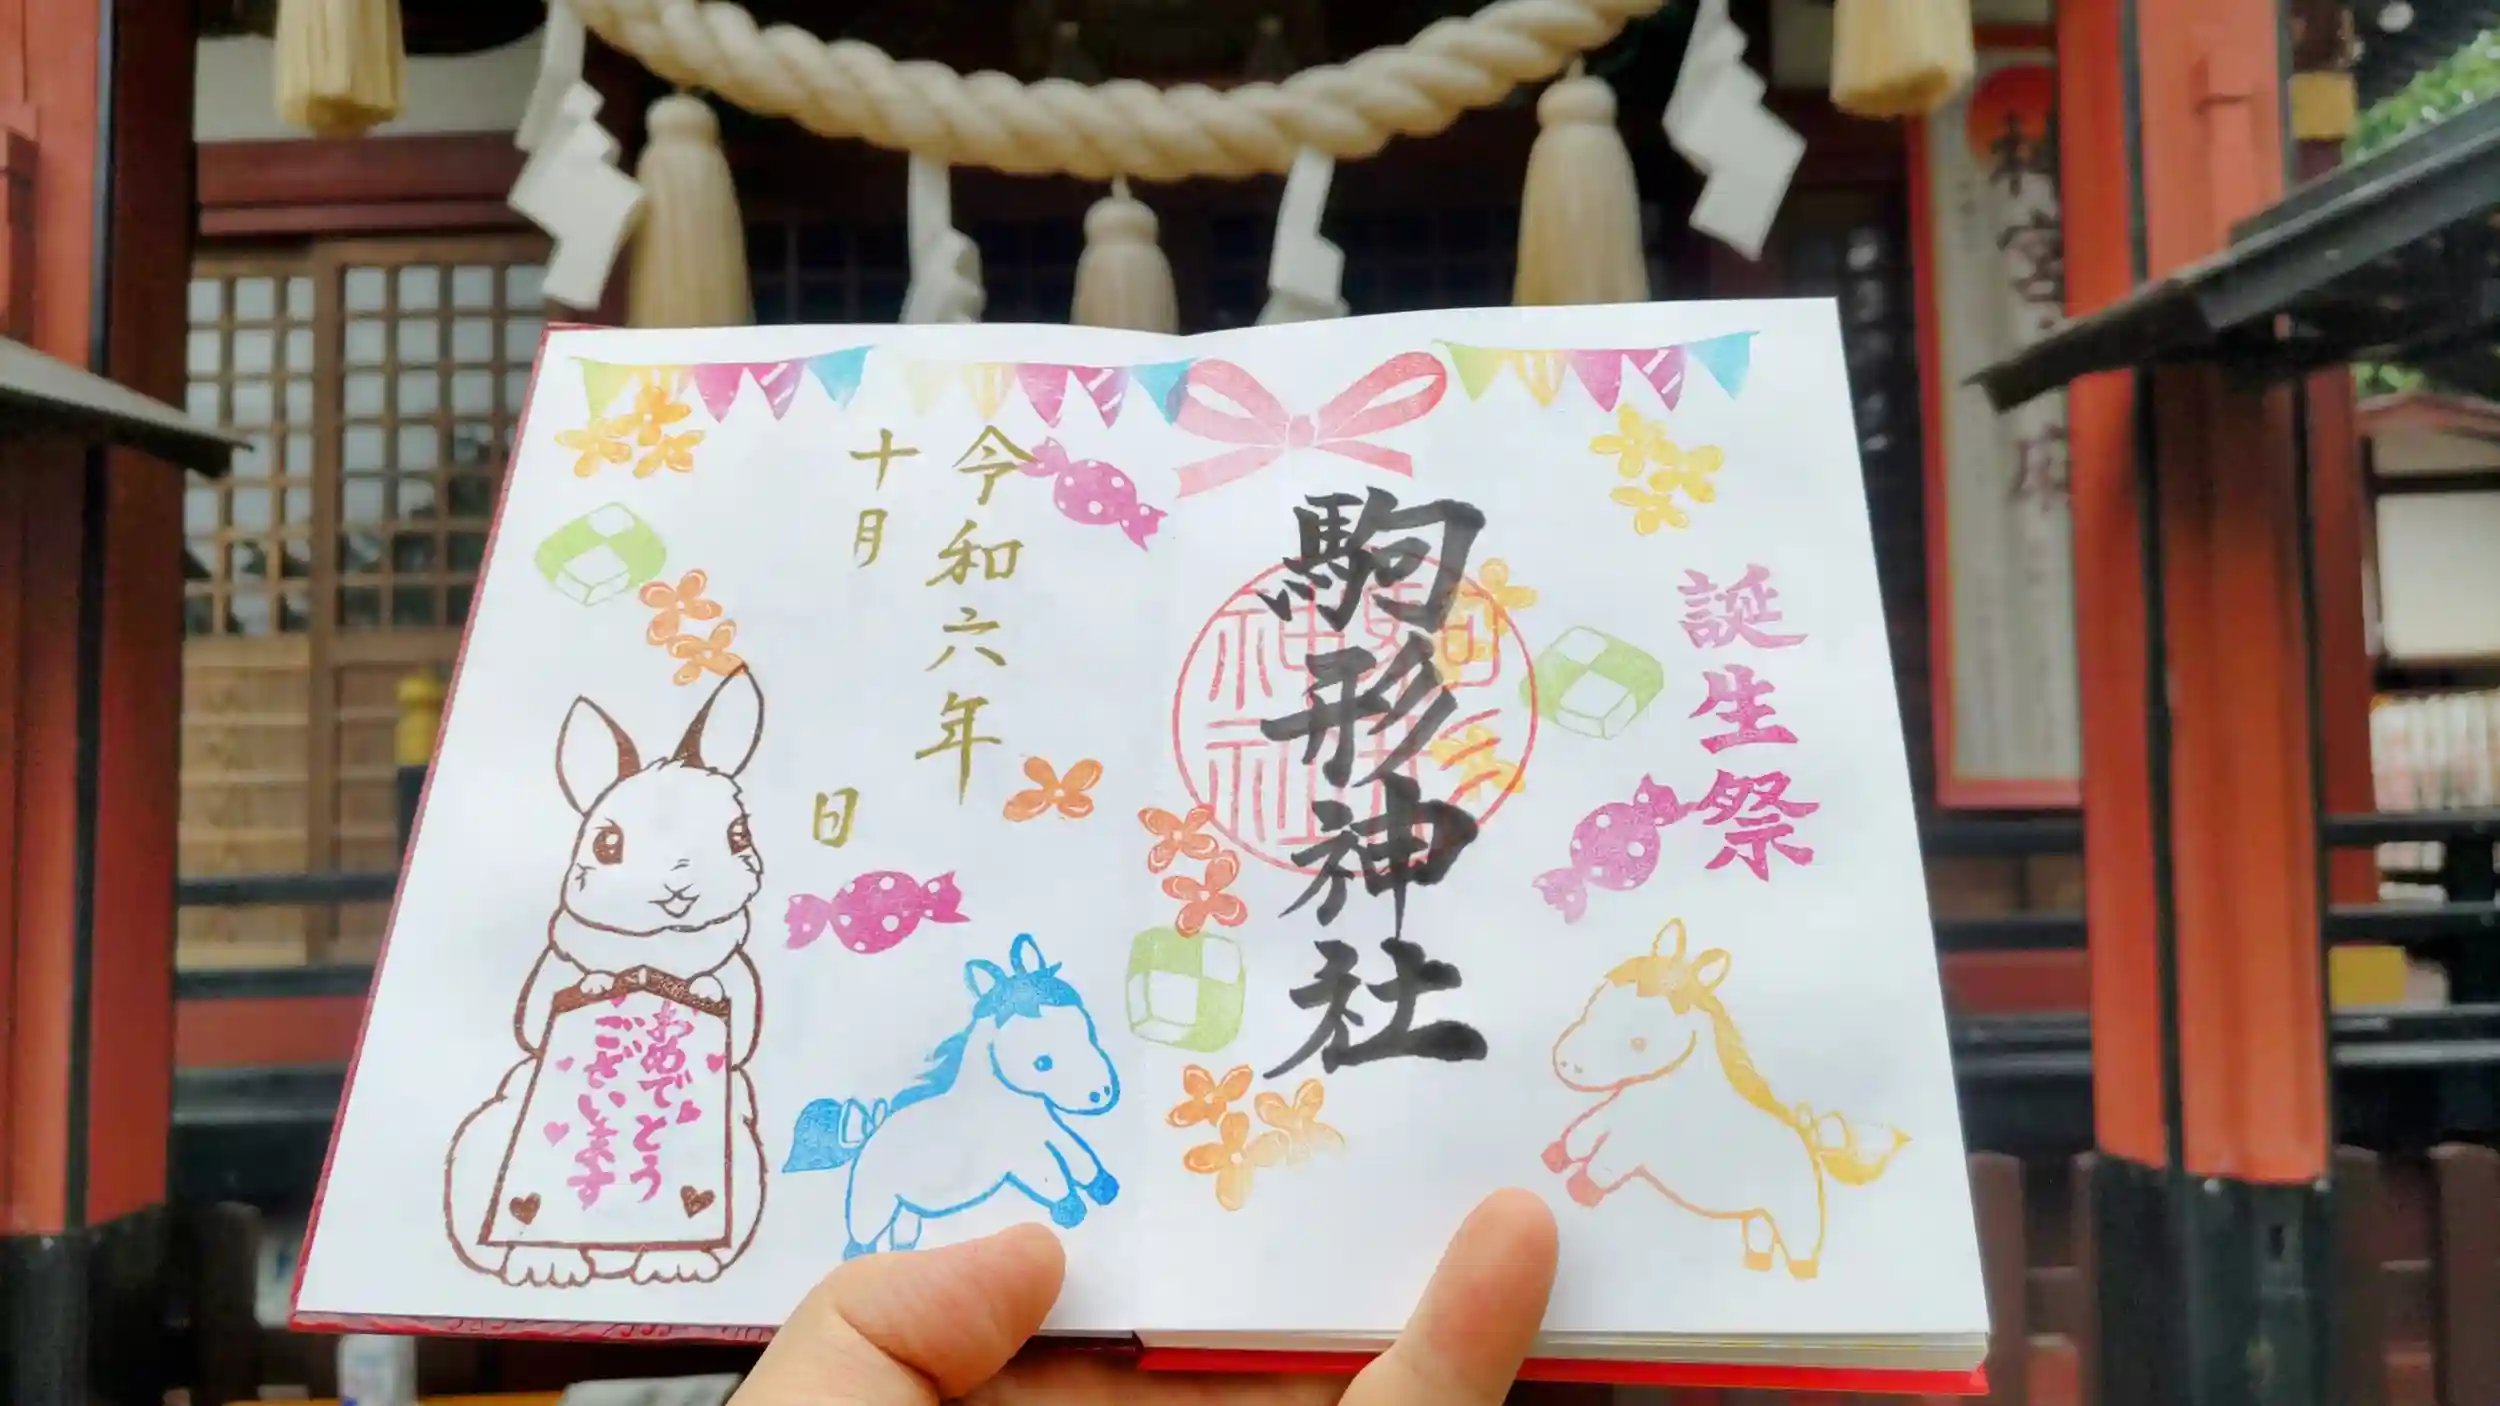 誕生祭
駒形神社
駒形
神社
令和六年
十月
日
おめでとう
ございます